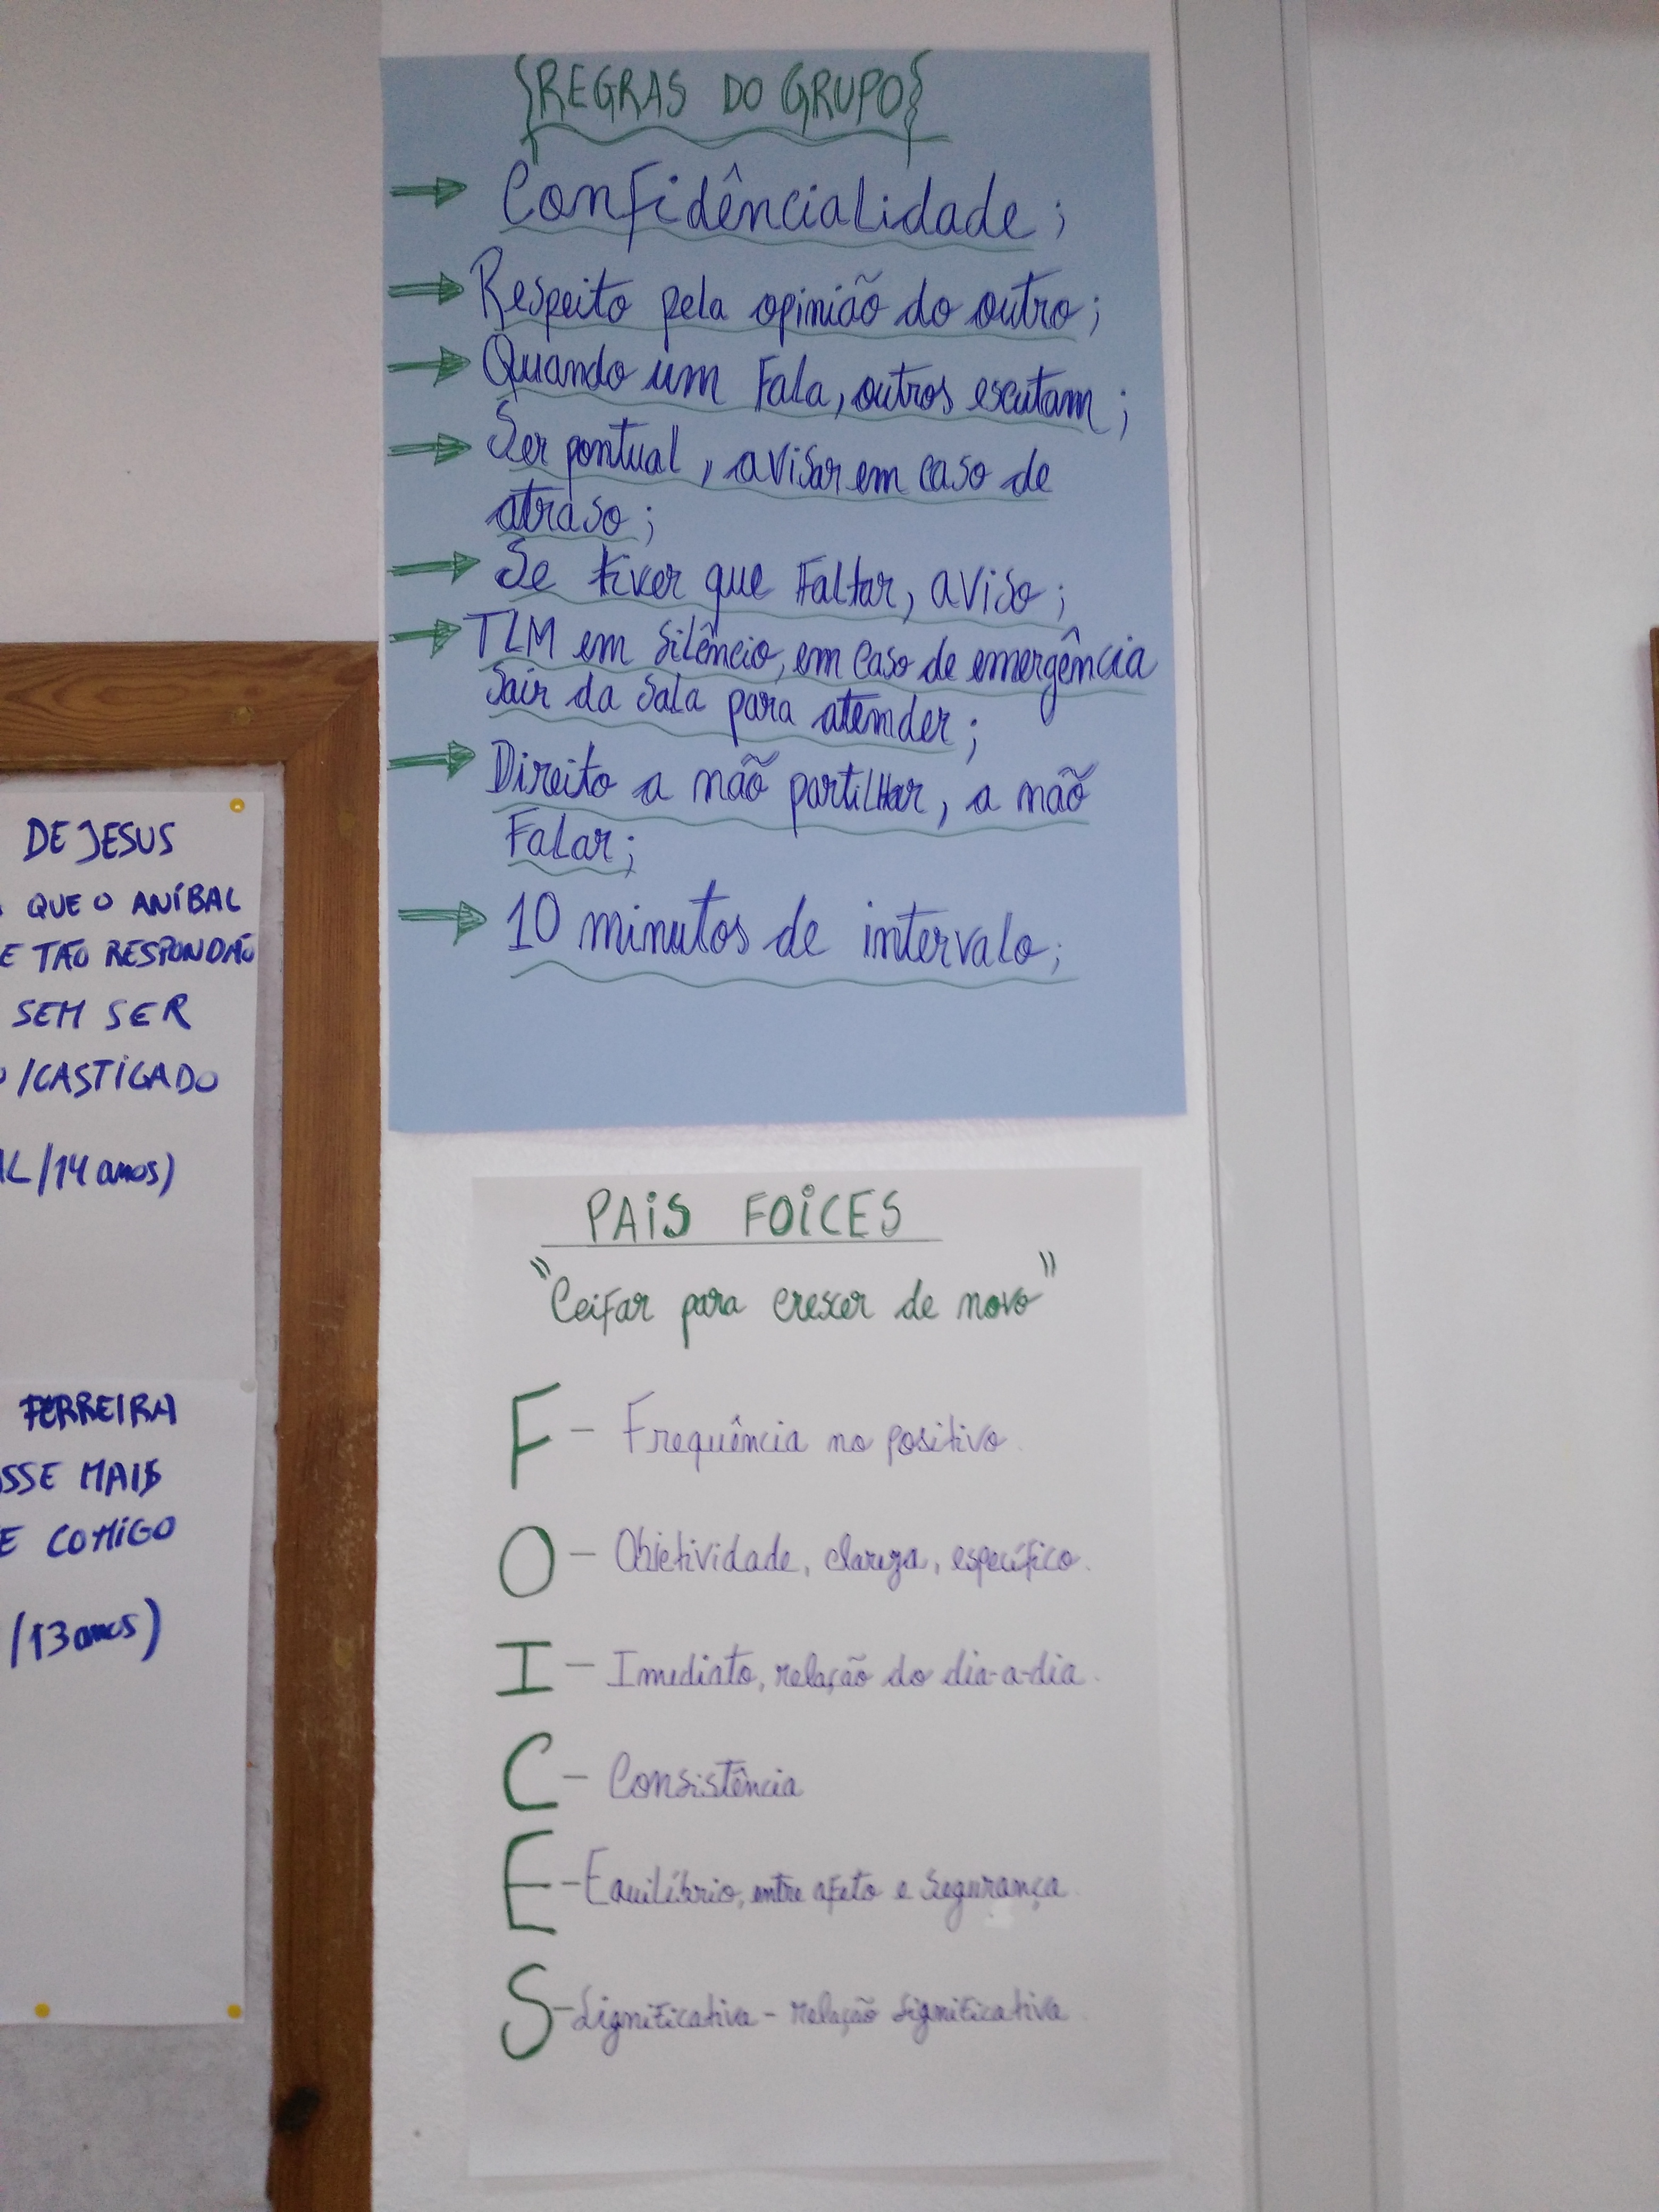 {REGRAS DO GRUPO}
→ Confidêncialidade;
→ Respeito pela opinião do outro;
→ Quando um Fala, outros escutam;
→ Ser pontual, avisar em caso de
atraso;
→ Se tiver que Faltar, aviso;
→ TLM em silêncio, em caso de emergência
sair da sala para atender;
→ Direito a não partilhar, a não
Falar;
→ 10 minutos de intervalo;
PAIS FOICES
"Ceifar para crescer de novo"
F - Frequência no positivo.
O - Objetividade, clareza, específico.
I - Imediato, relação do dia-a-dia.
C - Consistência
E - Equilíbrio, entre afeto e segurança.
S - Significativa - relação significativa.
DE JESUS
QUE O ANÍBAL
E TÃO RESPONDÃO
SEM SER
/CASTIGADO
AL/14 anos)
FERREIRA
SSE MAIS
E COMIGO
/13 anos)